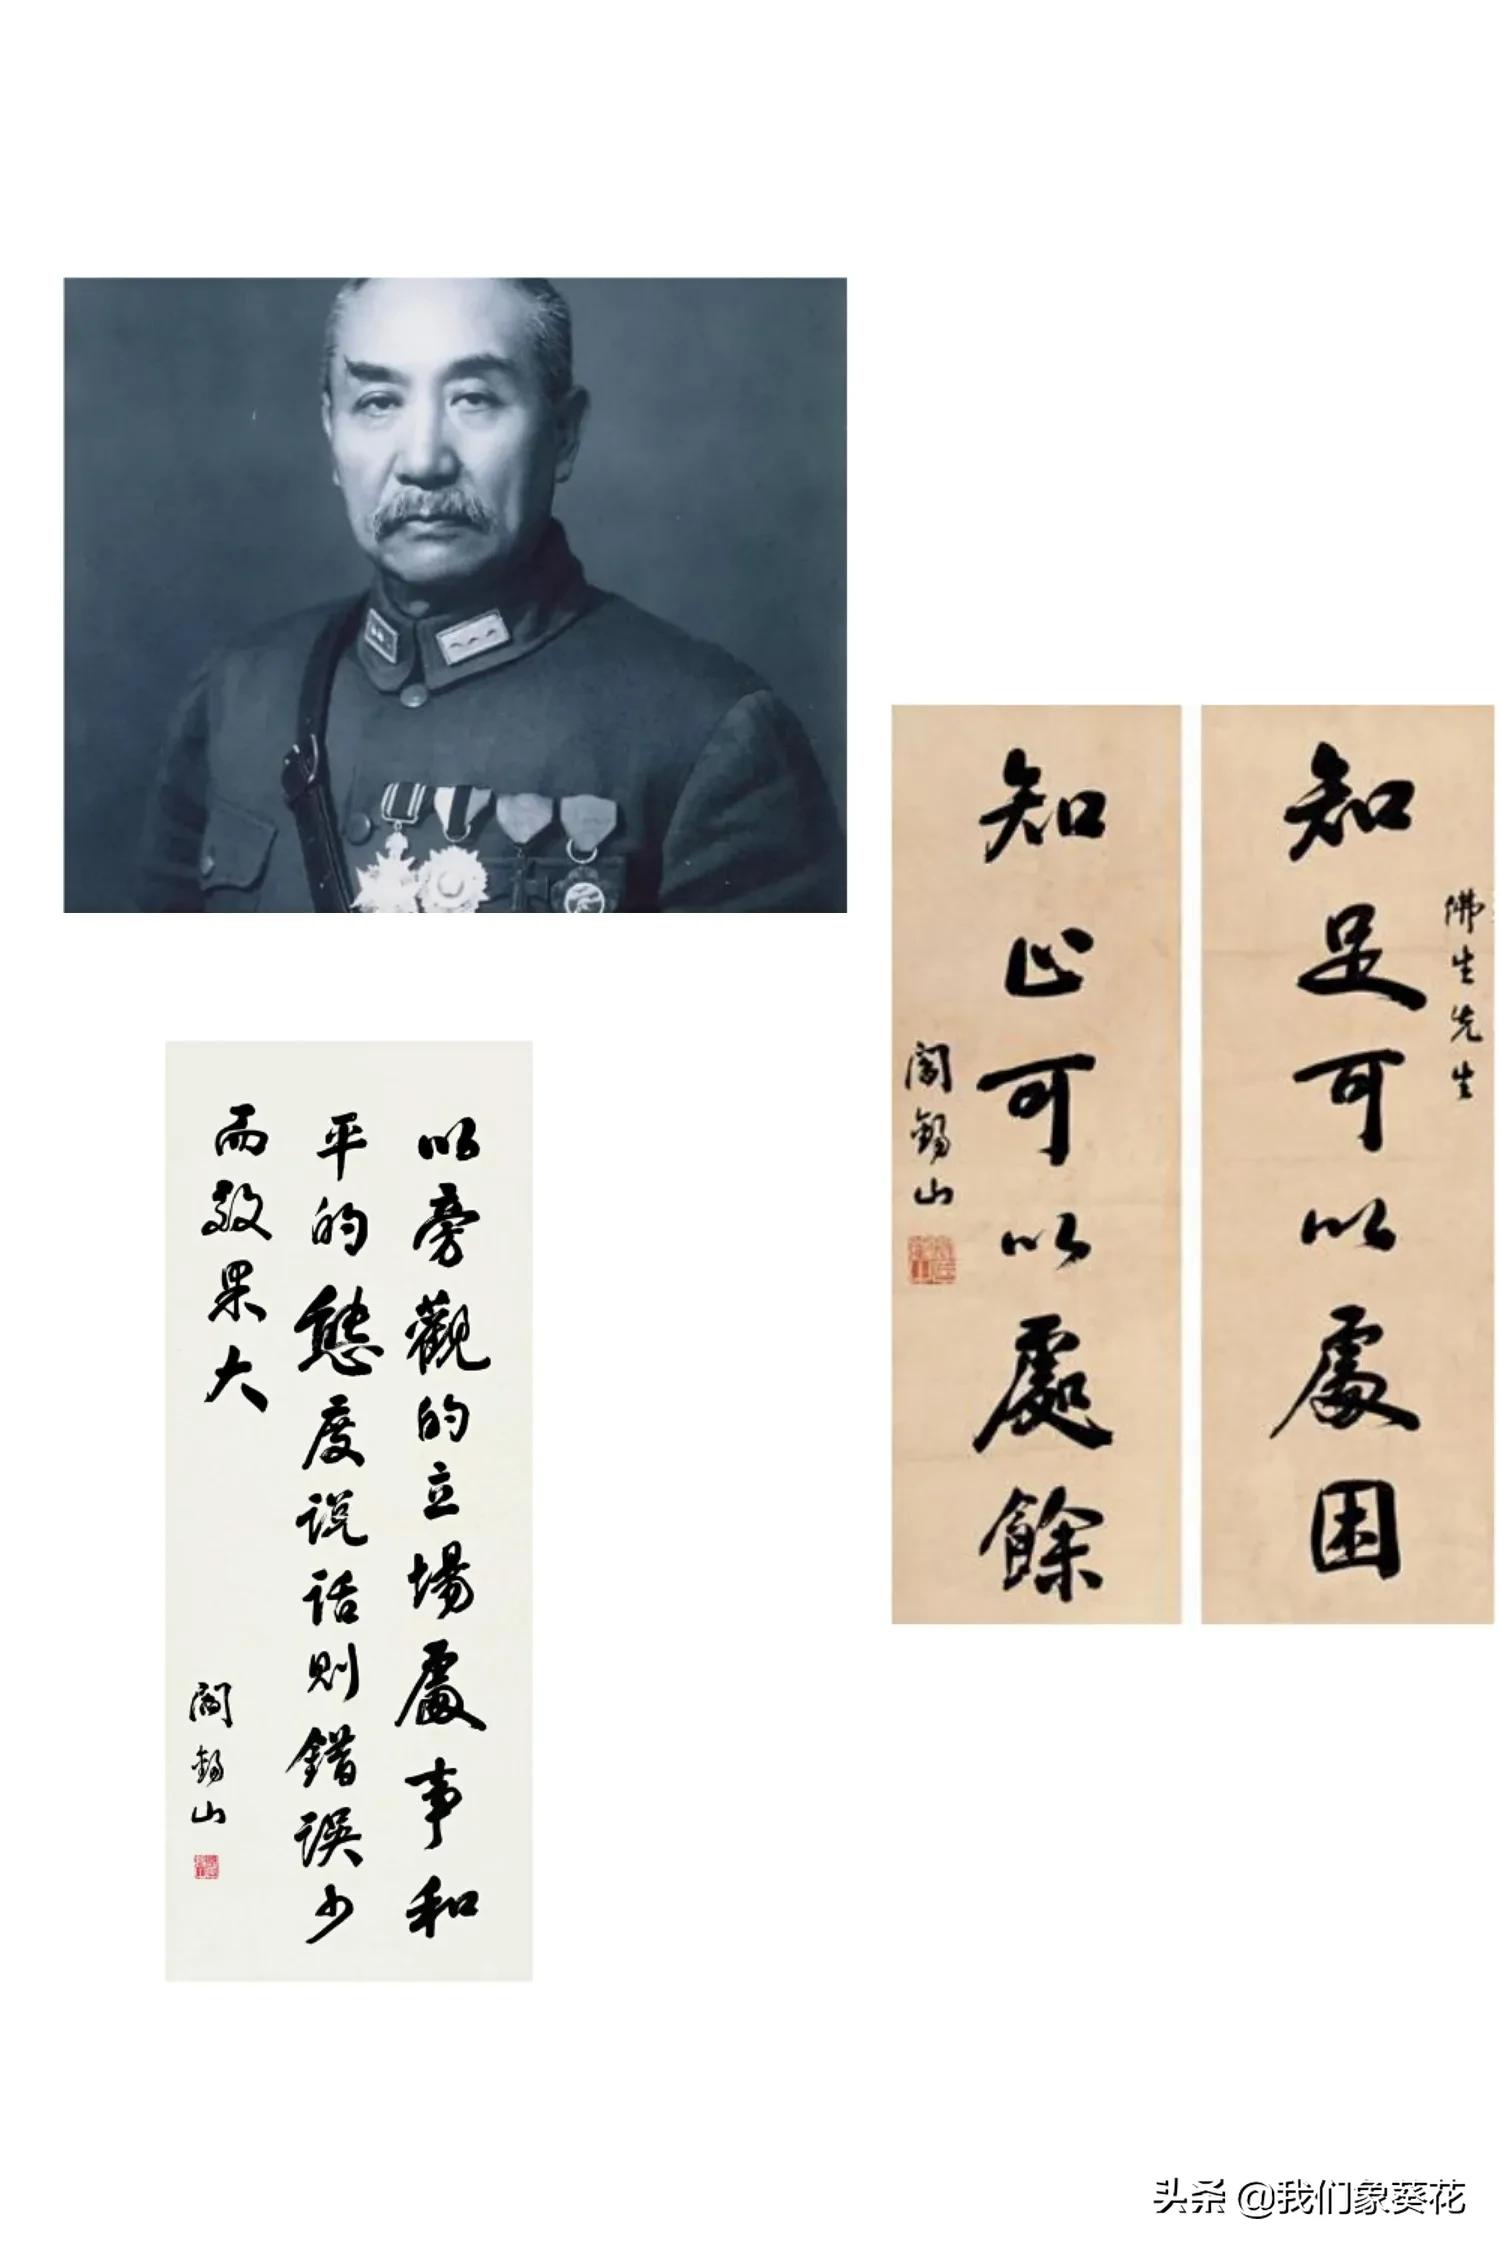 佛生先生
知足可以處困
知止可以處餘
閻錫山
以旁觀的立場處事和
平的態度说话则錯误少
而效果大
閻錫山
头条 @我们象葵花